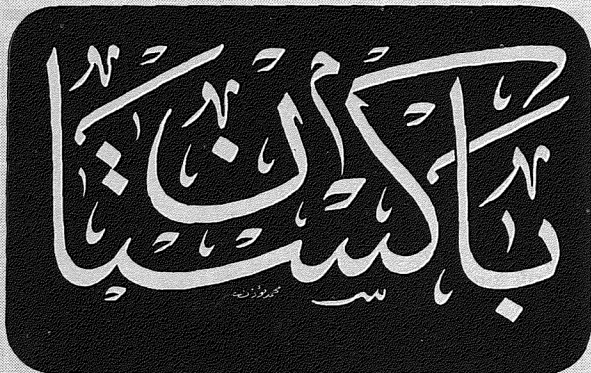 باكستان